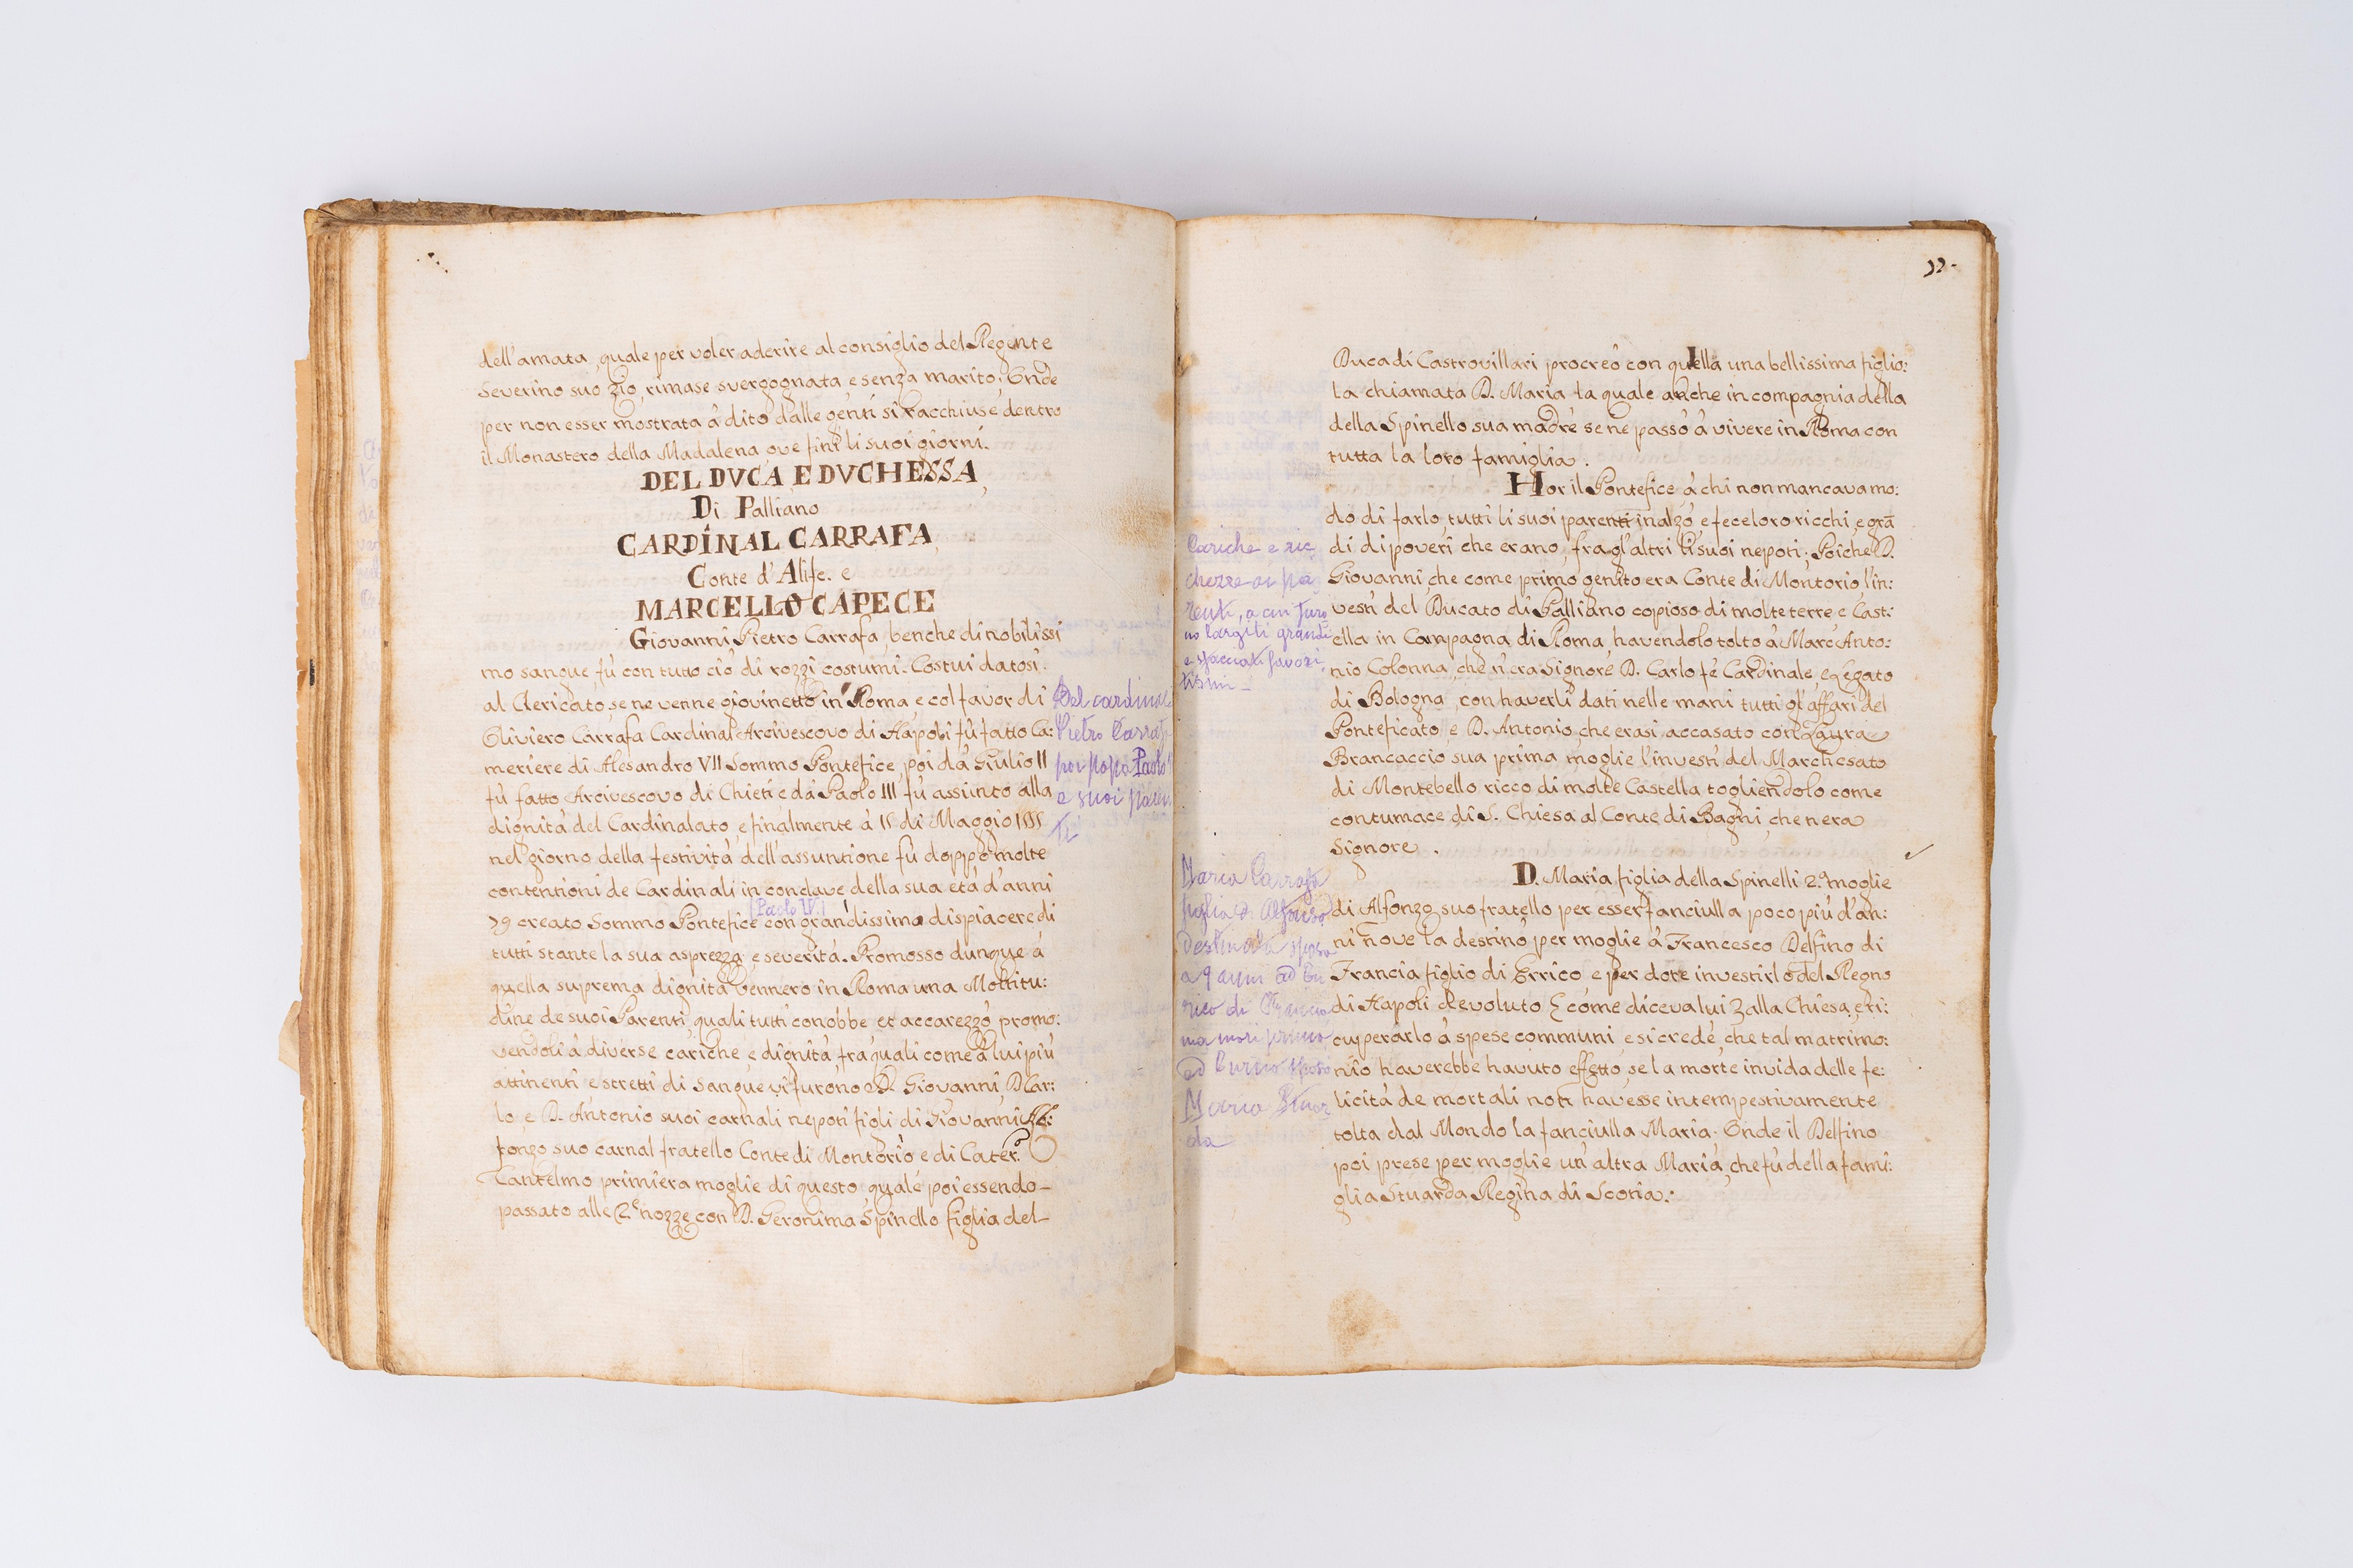 dell'amata, quale per voler aderire al consiglio del Regente
Severino suo zio, rimase svergognata e senza marito; Onde
per non esser mostrata à dito dalle genti si racchiuse dentro
il Monastero della Madalena ove finì li suoi giorni.
DEL DVCA E DVCHESSA
Di Palliano
CARDINAL CARRAFA
Conte d'Alife. e
MARCELLO CAPECE
Giovanni Pietro Carrafa, benche di nobilissi
mo sangue, fù con tutto ciò di rozzi costumi. Costui datosi
al Clericato, se ne venne giovinetto in Roma, e col favor di
Oliviero Carrafa Cardinal Arcivescovo di Napoli fù fatto Ca:
meriere di Alesandro VII Sommo Pontefice, poi dà Giulio II
fù fatto Arcivescovo di Chieti, e dà Paolo III fù assunto alla
dignità del Cardinalato, e finalmente à 15 di Maggio 1555
nel giorno della festività dell'assuntione fù doppo molte
contentioni de Cardinali in conclave della sua età d'anni
79 creato Sommo Pontefice con grandissimo dispiacere di
(Paolo IV.)
tutti stante la sua asprezza, e severità. Promosso dunque à
quella suprema dignità vennero in Roma una Moltitu:
dine de suoi Parenti, quali tutti conobbe et accarezzò, promo:
vendoli à diverse cariche, e dignità, frà quali come à lui più
attinenti e stretti di sangue vi furono D. Giovanni, D. Car:
lo, e D. Antonio suoi carnali nepoti figli di Giovanni Al:
fonzo suo carnal fratello Conte di Montorio e di Cater.
Cantelmo primiera moglie di questo, quale poi essendo
passato alle 2.e nozze con D. Geronima Spinello figlia del
Del cardinal
Pietro Carrafa
poi papa Paolo
e suoi paren
ti
12.
Duca di Castrovillari procreò con quella una bellissima figlio:
la chiamata D. Maria la quale anche in compagnia della
della Spinello sua madre se ne passò à vivere in Roma con
tutta la loro famiglia.
Hor il Pontefice à chi non mancava mo:
do di farlo, tutti li suoi parenti inalzò, e fece loro ricchi, e grā
di di poveri che erano, fra gl'altri li suoi nepoti; Poiche D.
Giovanni, che come primo genito era Conte di Montorio, l'in:
vestì del Ducato di Palliano copioso di molte terre, e Cast:
ella in Campagna di Roma, havendolo tolto à Marc'Anto:
nio Colonna, che n'era Signore D. Carlo fè Cardinale, e Legato
di Bologna, con haverli dati nelle mani tutti gl'affari del
Ponteficato, e D. Antonio, che erasi accasato con Laura
Brancaccio sua prima moglie l'investì del Marchesato
di Montebello ricco di molte Castella togliendolo come
contumace di S. Chiesa al Conte di Bagni, che nera
Signore.
D. Maria figlia della Spinelli 2.a moglie
di Alfonzo suo fratello per esser fanciulla poco più d'an:
ni nove la destinò per moglie à Francesco Delfino di
Francia figlio di Errico, e per dote investirlo del Regno
di Napoli devoluto (come diceva lui) alla Chiesa, e ri:
cuperarlo à spese communi, e si crede, che tal matrimo:
nio haverebbe havuto effetto, se la morte invida delle fe:
licità de mortali non havesse intempestivamente
tolta dal Mondo la fanciulla Maria. Onde il Delfino
poi prese per moglie un'altra Maria, che fù della fami:
glia Stuarda Regina di Scotia.
Cariche e ric
chezze ai pa
renti, a cui furo
no largiti grandi
e favori
Maria Carrafa
figlia di Alfonso
destinata sposa
a 9 anni ad En
rico di Francia
ma morì prima
ed Enrico sposò
Maria Stuar
da